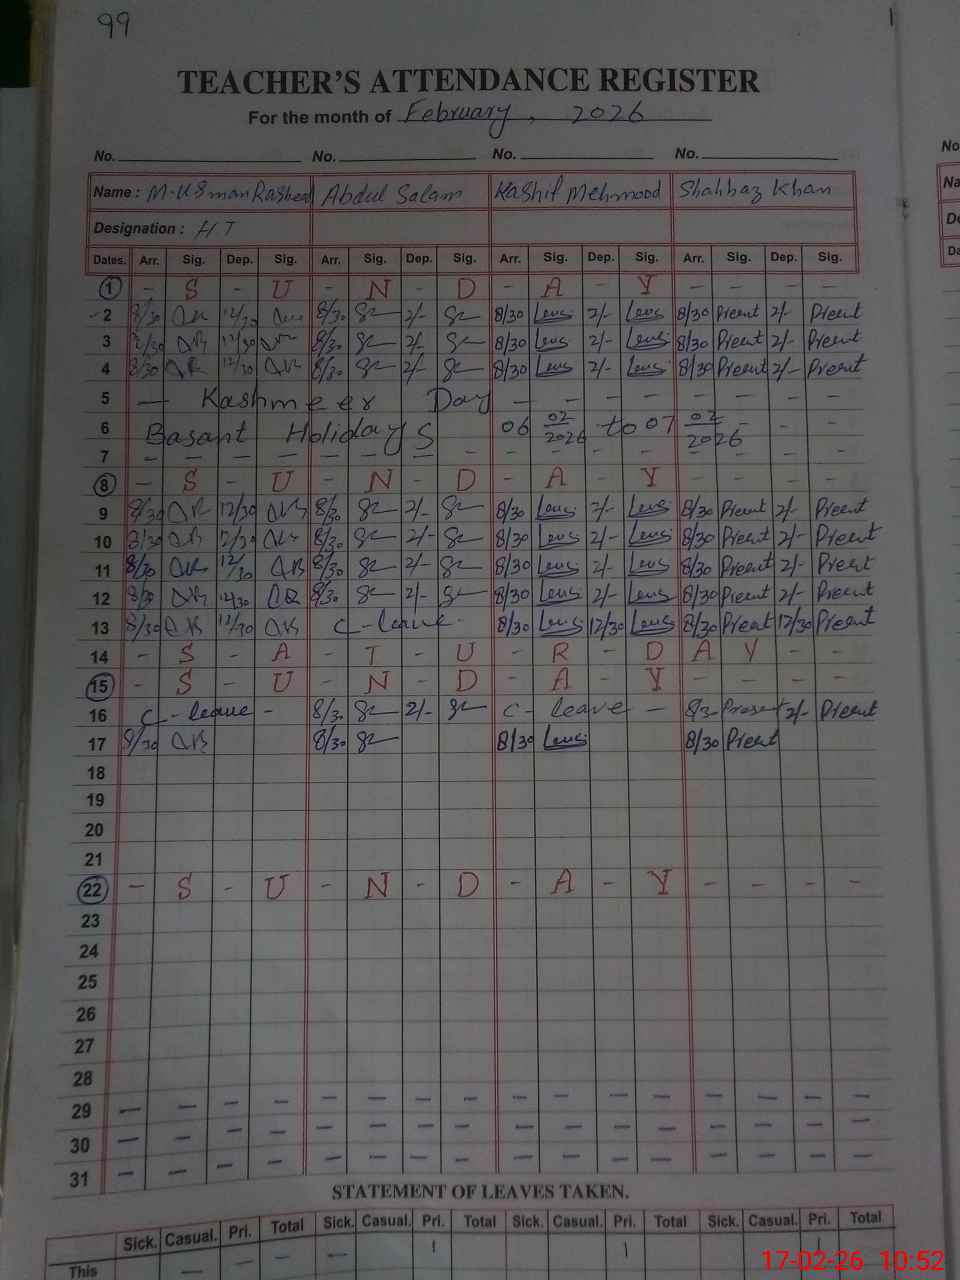 99
TEACHER'S ATTENDANCE REGISTER
For the month of February, 2026
No. No. No. No.
Name : M-Usman Rasheed Abdul Salam Kashif Mehmood Shahbaz Khan
Designation : HT
Dates. Arr. Sig. Dep. Sig. Arr. Sig. Dep. Sig. Arr. Sig. Dep. Sig. Arr. Sig. Dep. Sig.
1 - S - U - N - D - A - Y - - - -
2 8/30 12/30 8/30 2/- 8/30 2/- 8/30 Present 2/- Present
3 8/30 12/30 8/30 2/- 8/30 2/- 8/30 Present 2/- Present
4 8/30 12/30 8/30 2/- 8/30 2/- 8/30 Present 2/- Present
5 — Kashmeer Day - - - - - - -
6 Basant Holidays 06 02/2026 to 07 02/2026 - - -
7 - - - - - - - - - - - - - - - -
8 - S - U - N - D - A - Y - - - -
9 8/30 12/30 8/30 2/- 8/30 2/- 8/30 Present 2/- Present
10 8/30 12/30 8/30 2/- 8/30 2/- 8/30 Present 2/- Present
11 8/30 12/30 8/30 2/- 8/30 2/- 8/30 Present 2/- Present
12 8/30 12/30 8/30 2/- 8/30 2/- 8/30 Present 2/- Present
13 8/30 12/30 C-leave 8/30 12/30 8/30 Present 12/30 Present
14 - S - A - T - U - R - D A Y - -
15 - S - U - N - D - A - Y - - - -
16 C-leave - 8/30 2/- C-leave - 8/30 Present 2/- Present
17 8/30 8/30 8/30 8/30 Present
18
19
20
21
22 - S - U - N - D - A - Y - - - -
23
24
25
26
27
28
29 - - - - - - - - - - - - - - - -
30 - - - - - - - - - - - - - - - -
31 - - - - - - - - - - - - - - - -
STATEMENT OF LEAVES TAKEN.
Sick. Casual. Pri. Total Sick. Casual. Pri. Total Sick. Casual. Pri. Total Sick. Casual. Pri. Total
This — - - - 1 1 1
17-02-26 10:52
No
Na
De
Da